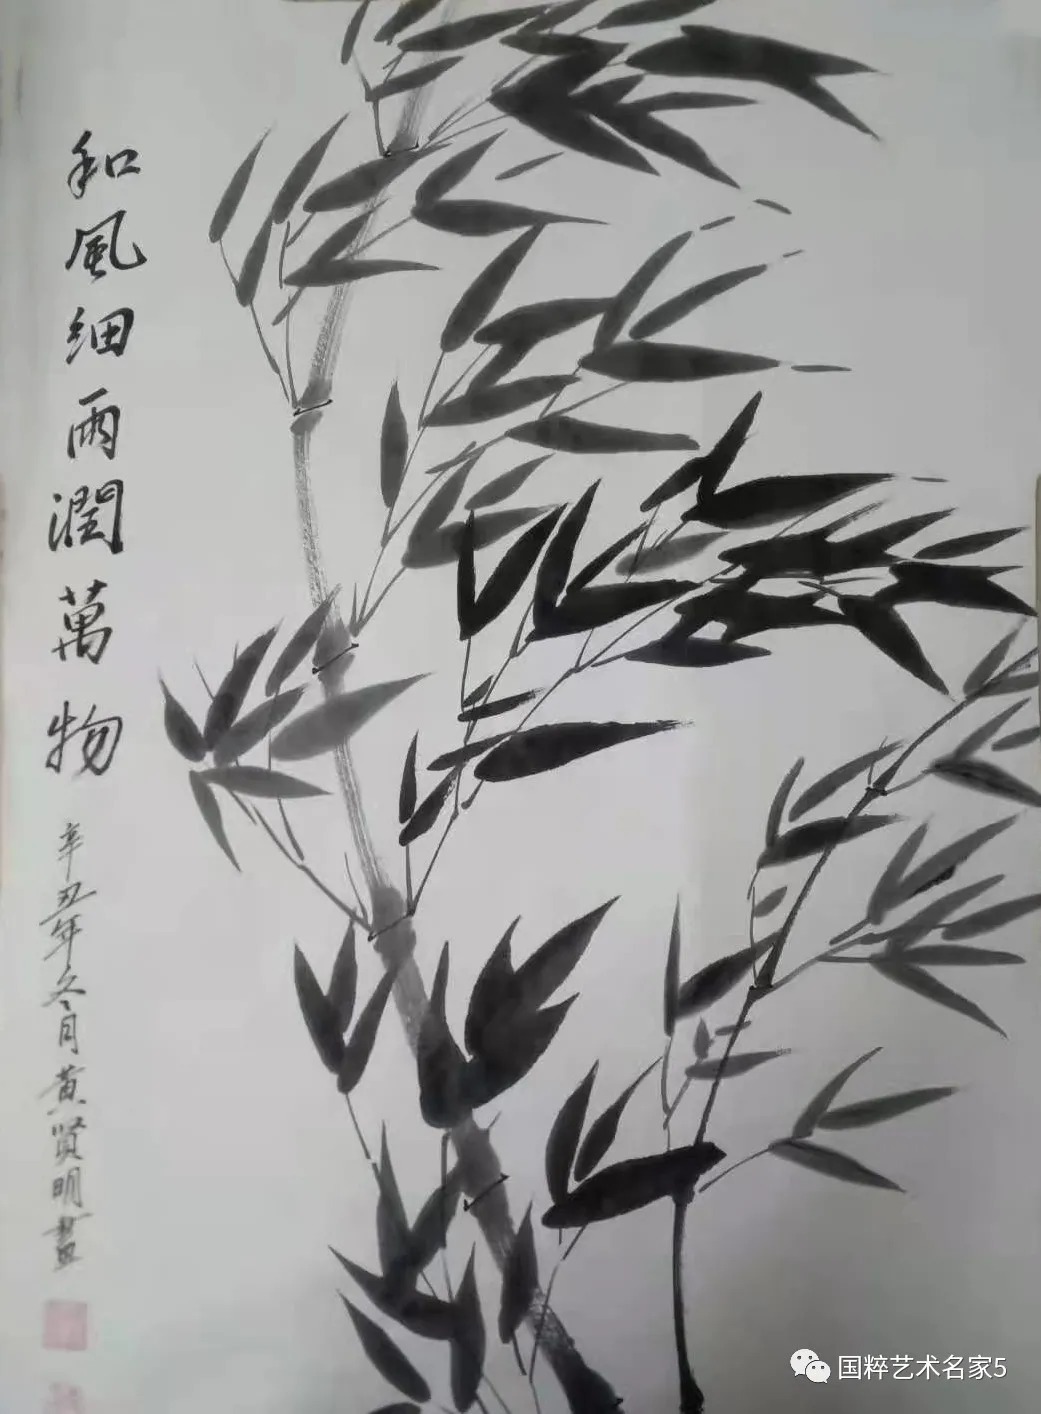 和風细雨潤萬物
辛丑年冬月黄贤明畫
国粹艺术名家5